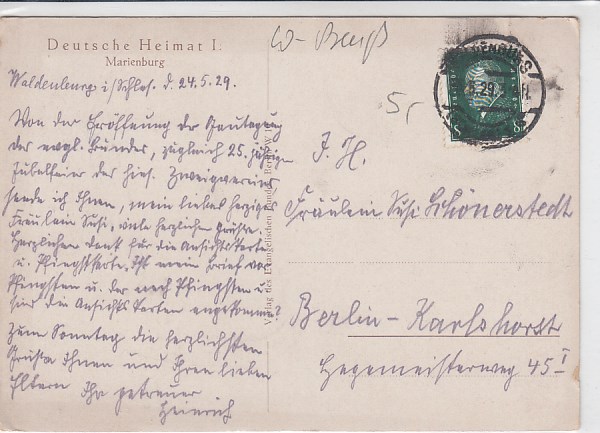 Deutsche Heimat I.
Marienburg
W-Beuß
Waldenburg i/Schles. d. 24.5.29.
5,-
Von der Eröffnung der Bautagung
des evgl. Bundes, zugleich 25. jähriges
Jubelfeier des hies. Zweigvereins
sende ich Ihnen, mein liebes herziges
Fräulein Susi, viele herzliche Grüße.
Herzlichen Dank für die Ansichtskarte
u. Pfingstkarte. Ist mein Brief vor
Pfingsten u. der nach Pfingsten u.
sind die Ansichts Karten angekommen?
Zum Sonntag die herzlichsten
Grüße Ihnen und Ihren lieben
Eltern Ihr getreuer
Heinrich
Verlag des Evangelischen Bundes, Berlin W
8
I. H.
Fräulein Susi Schönerstedt
Berlin-Karlshorst
Hegemeisterweg 45 I